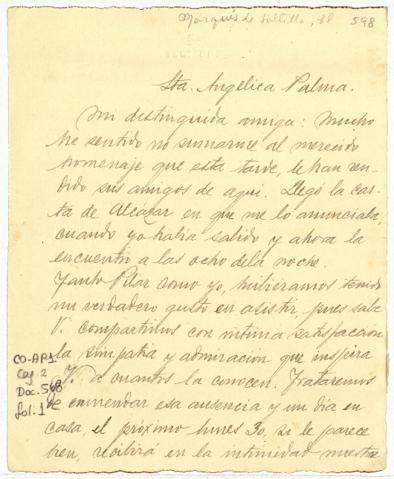 Marqués de Saltillo, El 598
Sta. Angélica Palma.
Mi distinguida amiga: Mucho
he sentido no sumarme al merecido
homenaje que esta tarde, le han ren-
dido sus amigos de aqui. Llegó la car-
ta de Alcázar en que me lo anunciaba,
cuando yo habia salido y ahora la
encuentro a las ocho de la noche.
Tanto Pilar como yo, hubieramos tenido
un verdadero gusto en asistir, pues sabe
V. compartimos con intima satisfaccion
la simpatia y admiracion que inspira
V. a cuantos la conocen. Trataremos
de enmendar esa ausencia y un dia en
casa, el próximo lunes 30, si le parece
bien, recibirá en la intimidad nuestra
CO-AP1
Caj 2
Doc. 568
fol. 1